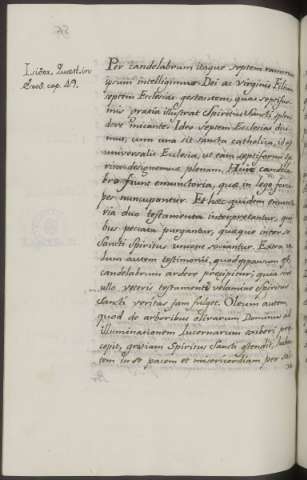 Isidor. Quaest. in
Exod. cap. 49.
Per candelabrum itaque septem ramorum
ipsum intelligimus Dei ac Virginis Filium
septem Ecclesias gestantem, quas septifor-
mis gratia illustrat Spiritus Sancti splen-
dore micante. Ideo septem Ecclesias dici-
mus, cum una sit sancta catholica, id est
universalis Ecclesia, ut eam septiformi spi-
ritu designemus plenam. Huic candela-
bro fiunt emunctoria, quae in lege for-
pes nuncupantur. Et haec quidem emuncto-
ria duo testamenta interpretantur, qui-
bus peccata purgantur, quaeque inter se
Sancti Spiritus unione sociantur. Extra ve-
lum autem testimonii, quod
candelabrum ardere praecipitur, quia
nullo veteris testamenti velamine Spiritus
Sancti veritas jam fulget. Oleum autem,
quod de arboribus olivarum Dominus ad
illuminationem lucernarum exhiberi prae-
cepit, gratiam Spiritus Sancti ostendit, haben-
tem in se pacem et misericordiam per